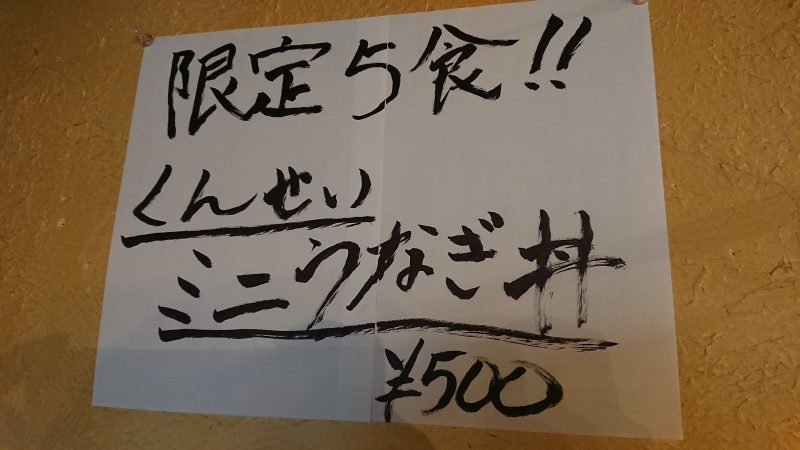 限定5食!!
くんせい
ミニうなぎ丼
¥500